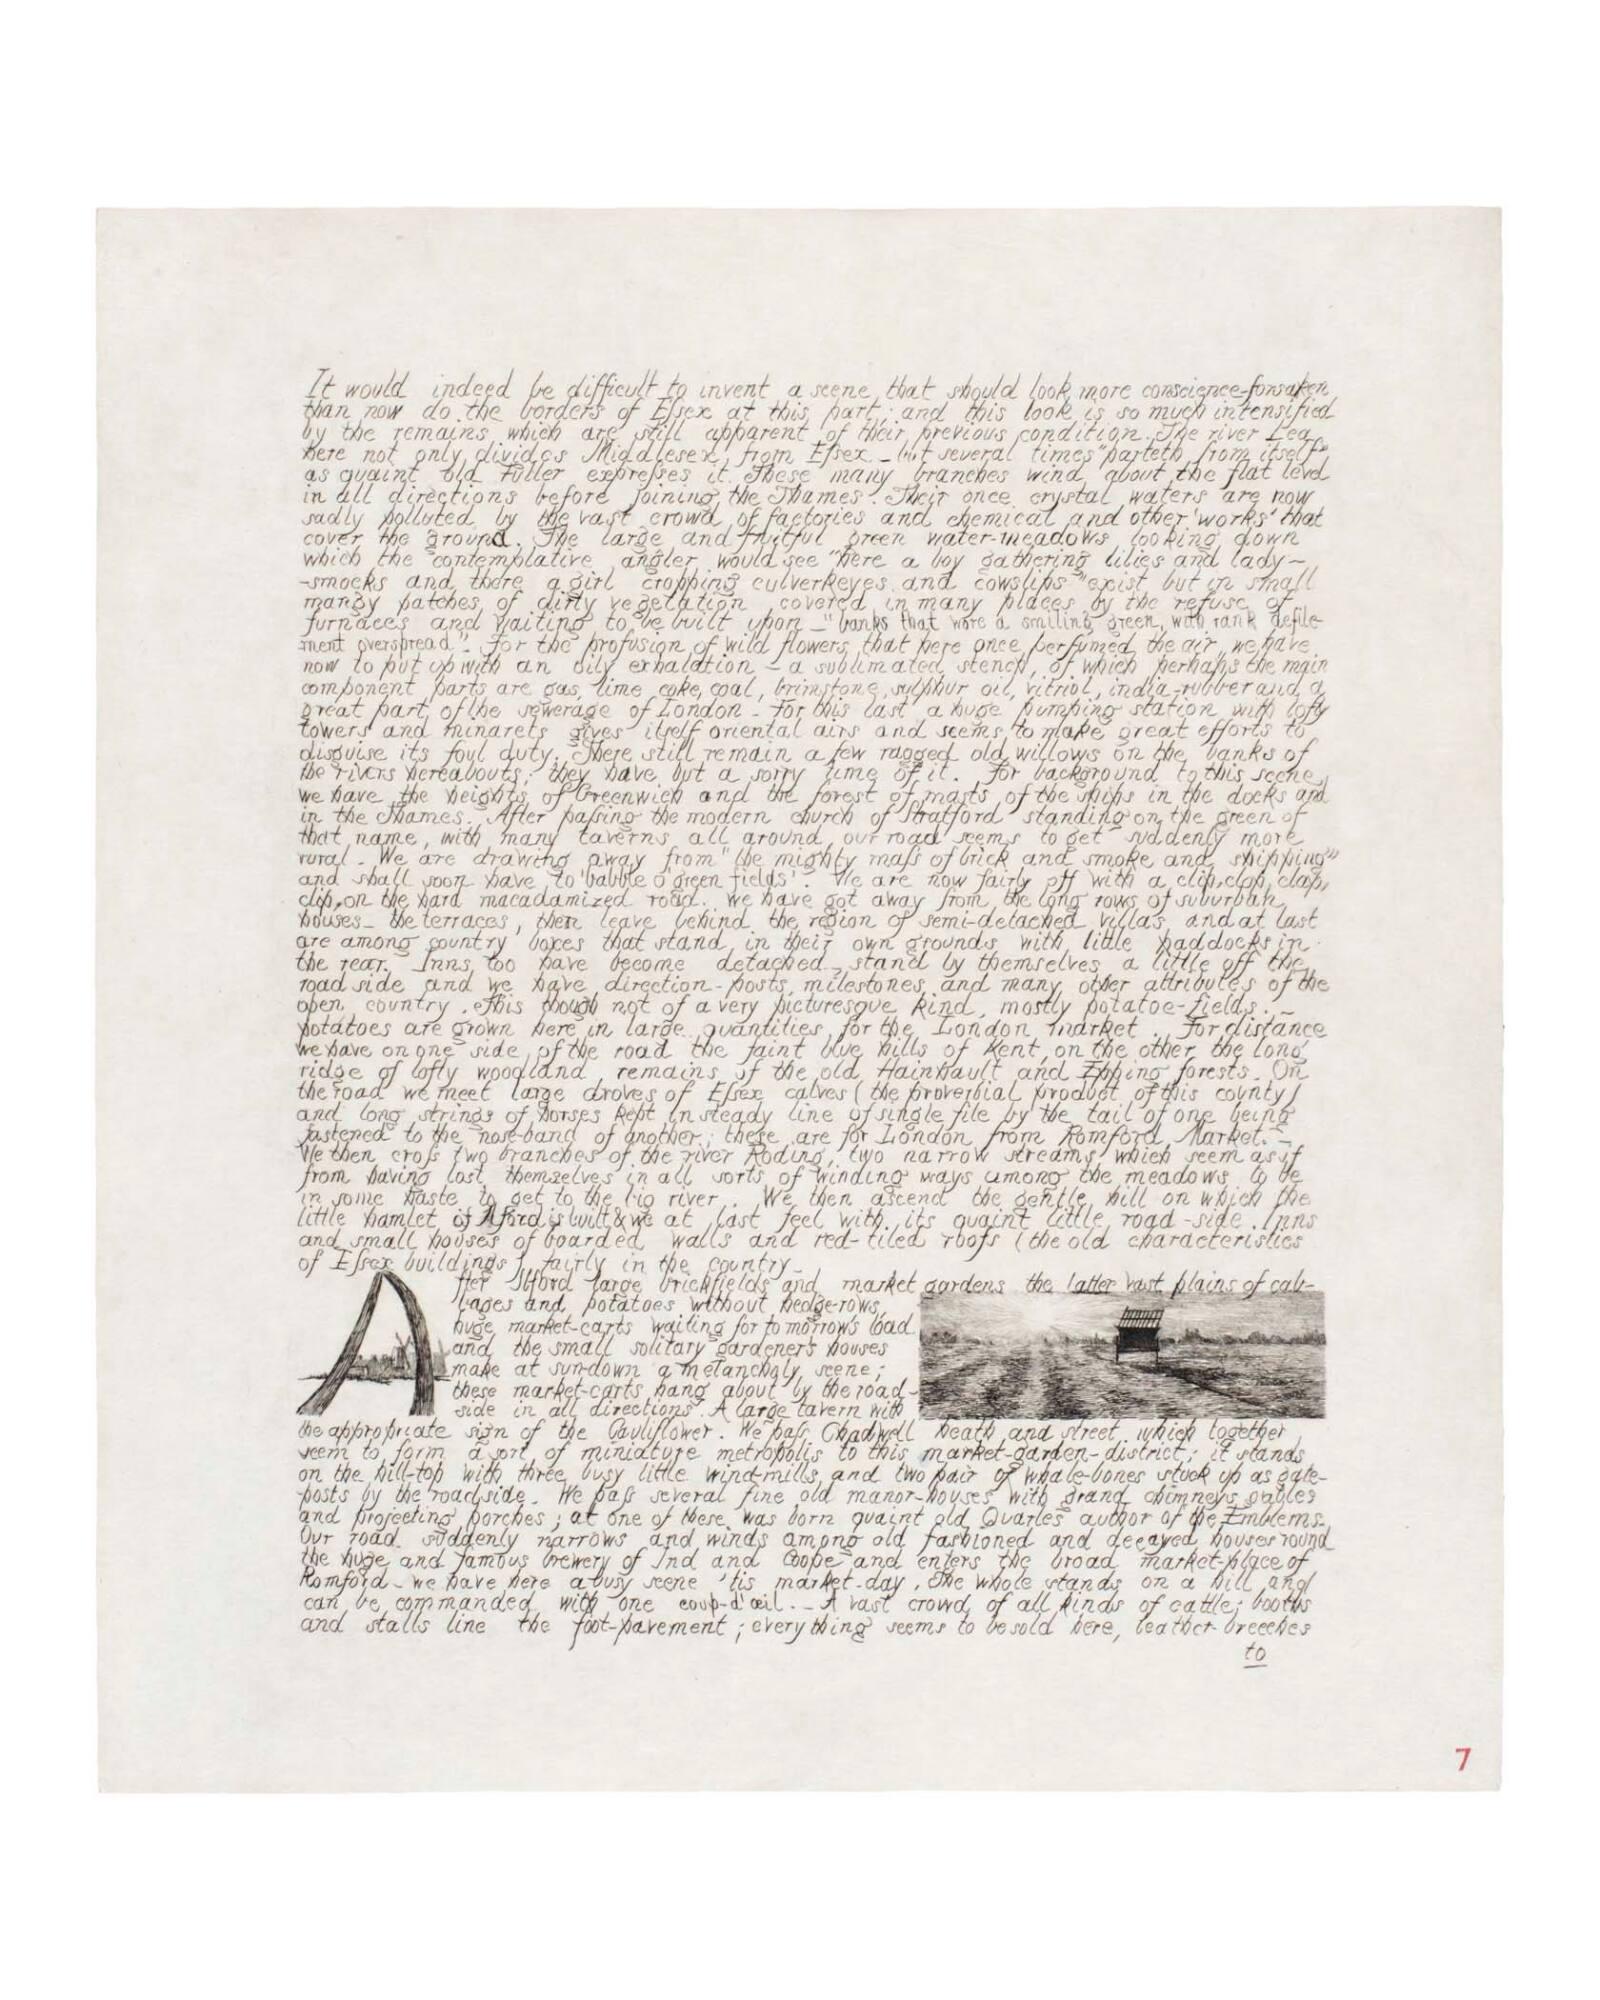 It would indeed be difficult to invent a scene, that should look more conscience-forsaken
than now do the borders of Eſsex at this part; and this look is so much intensified
by the remains which are still apparent of their previous condition. The river Lea
here not only divides Middlesex from Eſsex – but several times "parteth from itself",
as quaint old Fuller expreſses it. These many branches wind about the flat level
in all directions before joining the Thames. Their once crystal waters are now
sadly polluted by the vast crowd of factories and chemical and other 'works' that
cover the ground. The large and fruitful green water-meadows looking down
which the contemplative angler would see "here a boy gathering lilies and lady-
-smocks and there a girl cropping culverkeyes and cowslips" exist but in small
mangy patches of dirty vegetation covered in many places by the refuse of
furnaces and waiting to be built upon – "banks that wore a smiling green, with rank defile-
ment overspread". For the profusion of wild flowers that here once perfumed the air, we have
now to put up with an oily exhalation – a sublimated stench, of which perhaps the main
component parts are gas, lime, coke, coal, brimstone, sulphur oil, vitriol, india-rubber and a
great part of the sewerage of London – For this last a huge pumping station with lofty
towers and minarets gives itself oriental airs and seems to make great efforts to
disguise its foul duty. There still remain a few ragged old willows on the banks of
the rivers hereabouts; they have but a sorry time of it. For background to this scene
we have the heights of Greenwich and the forest of masts of the ships in the docks and
in the Thames. After paſsing the modern church of Stratford standing on the green of
that name, with many taverns all around, our road seems to get suddenly more
rural. We are drawing away from "the mighty maſs of brick and smoke and shipping"
and shall soon have to 'babble o' green fields'. We are now fairly off with a clip, clop, clap,
clop, on the hard macadamized road. We have got away from the long rows of suburban
houses – the terraces, then leave behind the region of semi-detached villas and at last
are among country boxes that stand in their own grounds with little paddocks in
the rear. Inns too have become detached, stand by themselves a little off the
road side and we have direction-posts, milestones and many other attributes of the
open country. This though not of a very picturesque kind, mostly potatoe-fields. –
potatoes are grown here in large quantities for the London market. For distance
we have on one side of the road the faint blue hills of Kent, on the other the long
ridge of lofty woodland remains of the old Hainhault and Epping forests. On
the road we meet large droves of Eſsex calves (the proverbial product of this county)
and long strings of horses kept in steady line of single file by the tail of one being
fastened to the nose-band of another; these are for London from Romford Market. –
We then croſs two branches of the river Roding, two narrow streams which seem as if
from having lost themselves in all sorts of winding ways among the meadows to be
in some haste to get to the big river. We then ascend the gentle hill on which the
little hamlet of Ilford is built & we at last feel with its quaint little road-side Inns
and small houses of boarded walls and red-tiled roofs (the old characteristics
of Eſsex buildings) fairly in the country –
After Ilford large brickfields and market gardens the latter vast plains of cab-
bages and potatoes without hedge-rows,
huge market-carts waiting for tomorrow's load
and the small solitary gardener's houses
make at sun-down a melancholy scene;
these market-carts hang about by the road-
side in all directions. A large tavern with
the appropriate sign of the Cauliflower. We paſs Chadwell heath and street which together
seem to form a sort of miniature metropolis to this market-garden-district; it stands
on the hill-top with three busy little wind-mills and two pair of whale-bones stuck up as gate-
-posts by the roadside. We paſs several fine old manor-houses with grand chimneys gables
and projecting porches; at one of these was born quaint old Quarles author of the Emblems.
Our road suddenly narrows and winds among old fashioned and decayed houses round
the huge and famous brewery of Ind and Coope and enters the broad market-place of
Romford – we have here a busy scene 'tis market-day. The whole stands on a hill and
can be commanded with one coup-d'œil. – A vast crowd of all kinds of cattle; booths
and stalls line the foot-pavement; everything seems to be sold here, leather-breeches
to
7